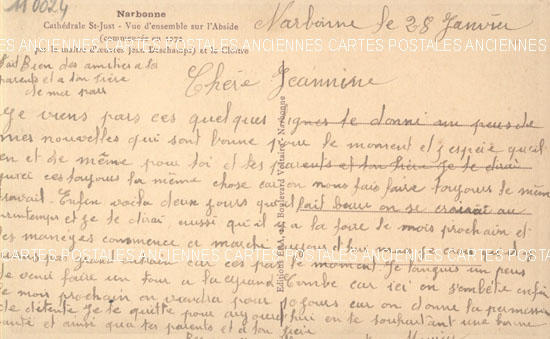 110024
Narbonne
Cathédrale St-Just - Vue d'ensemble sur l'Abside
(commencée en 1272
par le maître d'œuvres Jean Deschamps) et le Cloître
Narbonne le 28 Janvier
ANCIENNES CARTES POSTALES ANCIENNES CARTES POSTALES ANCIENNES
fait Bien des amitiés a la
parents et a ton frère
de ma part
Chère Jeannine
Je viens pars ces quelques lignes te donné un peus de
mes nouvelles qui sont bonne pour le moment et j'espère qu'il
en et de même pour toi et tes parents et ton frère Je te dirai
ces toujours la même chose car on nous fais faire toujours le même
travail. Enfin voila deux jours qu'il fait beau on se croirait au
printemps et je te dirai aussi qu'il y a la foire le mois prochain et
les manèges commence a marché
ANCIENNES CARTES POSTALES ANCIENNES CARTES POSTALES ANCIENNES
pas pour le moment. Je langues un peus
de venir faire un tour a la Grand Combe car ici on s'embête enfin
le mois prochain on viendra pour car on donne la permission
de détente Je te quitte pour aujourd'hui en te souhaitant une bonne
santé et ainsi qu'a tes parents et a ton frère
Boulevard Voltaire - Narbonne